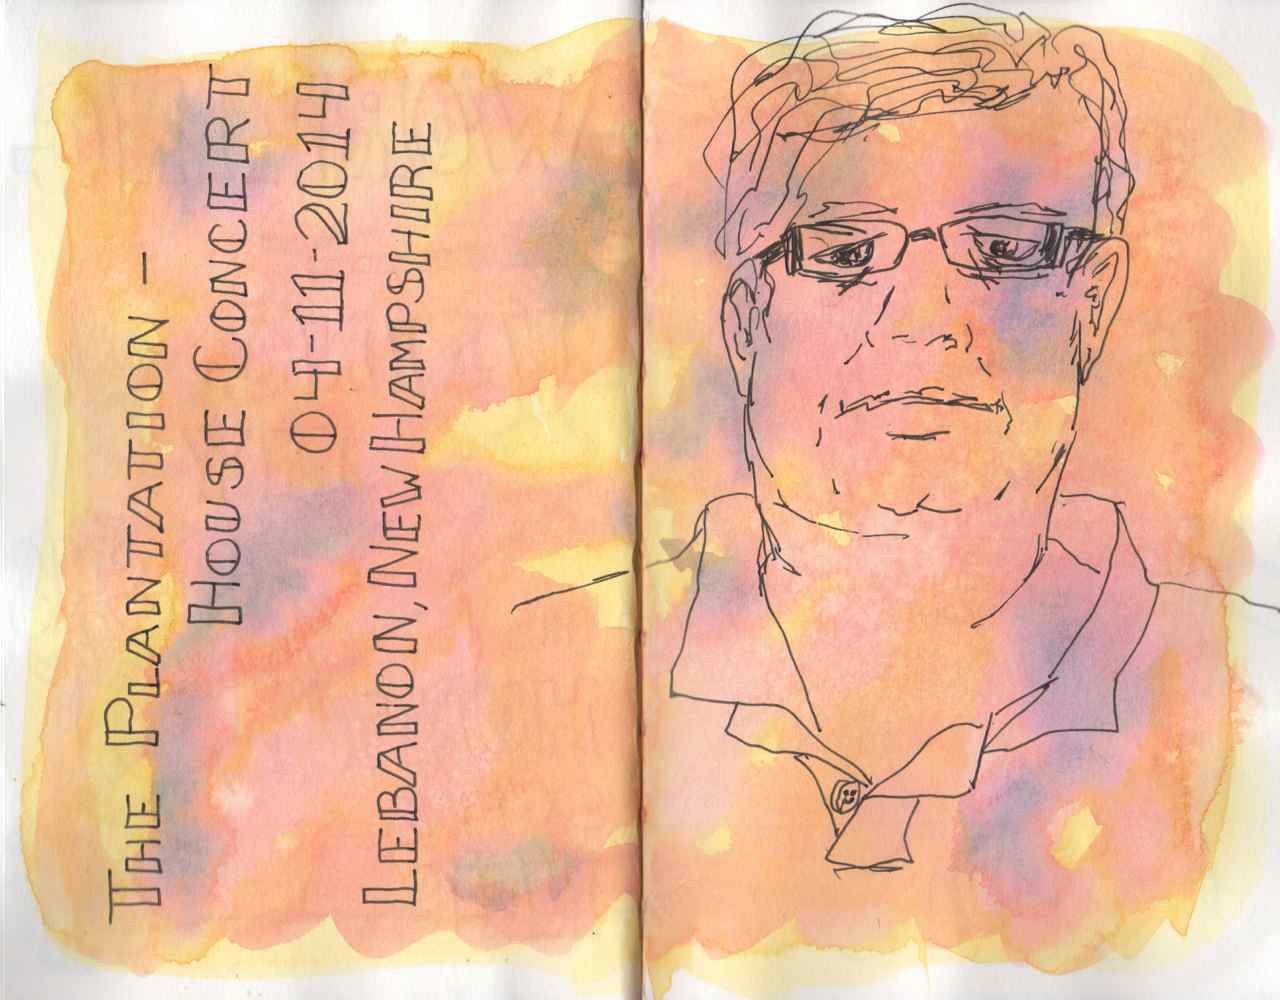 THE PLANTATION –
HOUSE CONCERT
04-11-2014
LEBANON, NEW HAMPSHIRE